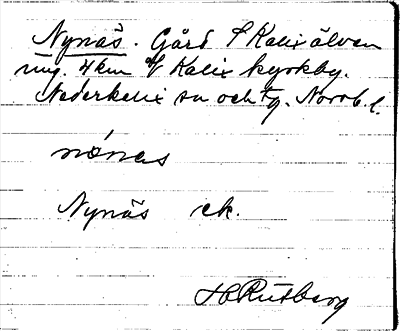 Nynäs. Gård f Kalixälven
ung. 4 km f Kalix kyrkby.
Nederkalix sn och tg. Norrb. l.
nönes
Nynäs ek.
H Rutberg